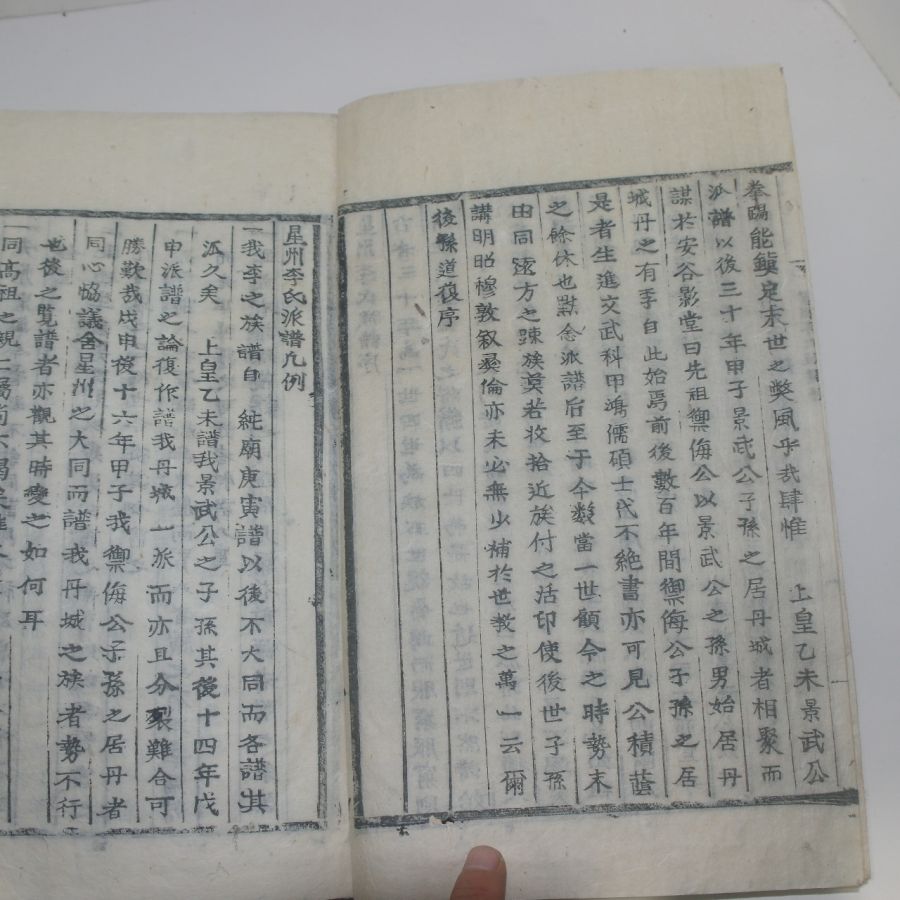 拳踢能鎭定末世之獘風乎哉肆惟 上皇乙未景武公
派譜以後三十年甲子景武公子孫之居丹城者相聚而
謀於安谷影堂曰先祖禦侮公以景武公之孫男始居丹
城丹之有李自此始焉前後數百年間禦侮公子孫之居
是者生進文武科甲鴻儒碩士代不絶書亦可見公積蔭
之餘休也黙念派譜后至于今數當一世顧今之時勢末
由同遠方之踈族莫若收拾近族付之活印使後世子孫
講明昭穆敦叙彛倫亦未必無少補於世敎之萬一云爾
後孫道復序
星州李氏派譜凡例
一我李之族譜自 純廟庚寅譜以後不大同而各譜其
派久矣 上皇乙未譜我景武公之子孫其後十四年戊
申派譜之論復作譜我丹城一派而亦且分裂難合可
勝歎哉戊申後十六年甲子我禦侮公子孫之居丹者
同心恊議舍星州之大同而譜我丹城之族者勢不行
也後之覽譜者亦觀其時變之如何耳
一同高祖之親